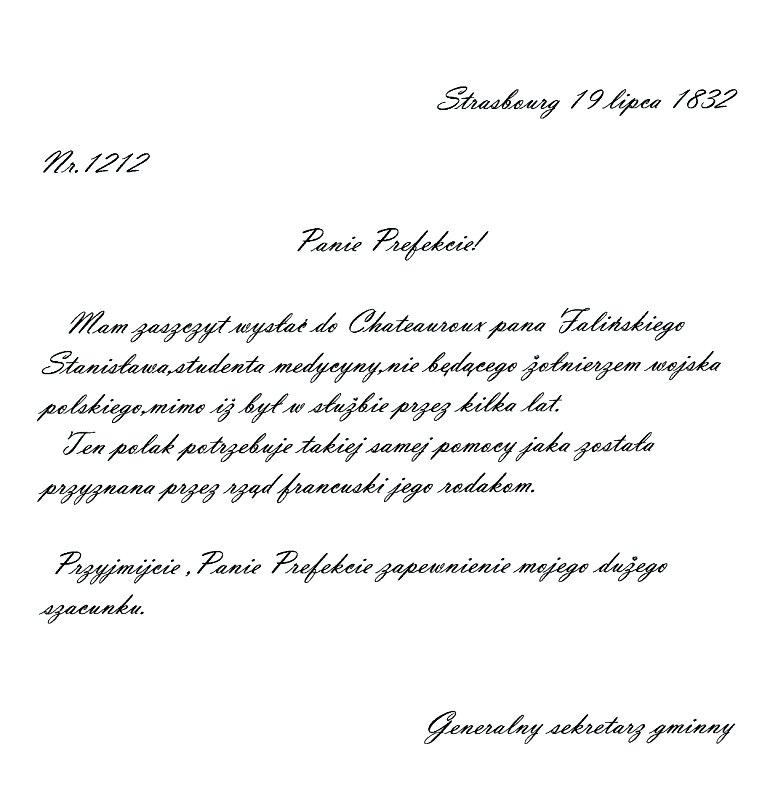 Strasbourg 19 lipca 1832
Nr.1212
Panie Prefekcie!
Mam zaszczyt wysłać do Chateauroux pana Falińskiego
Stanisława,studenta medycyny,nie będącego żołnierzem wojska
polskiego,mimo iż był w służbie przez kilka lat.
Ten polak potrzebuje takiej samej pomocy jaka została
przyznana przez rząd francuski jego rodakom.
Przyjmijcie ,Panie Prefekcie zapewnienie mojego dużego
szacunku.
Generalny sekretarz gminny